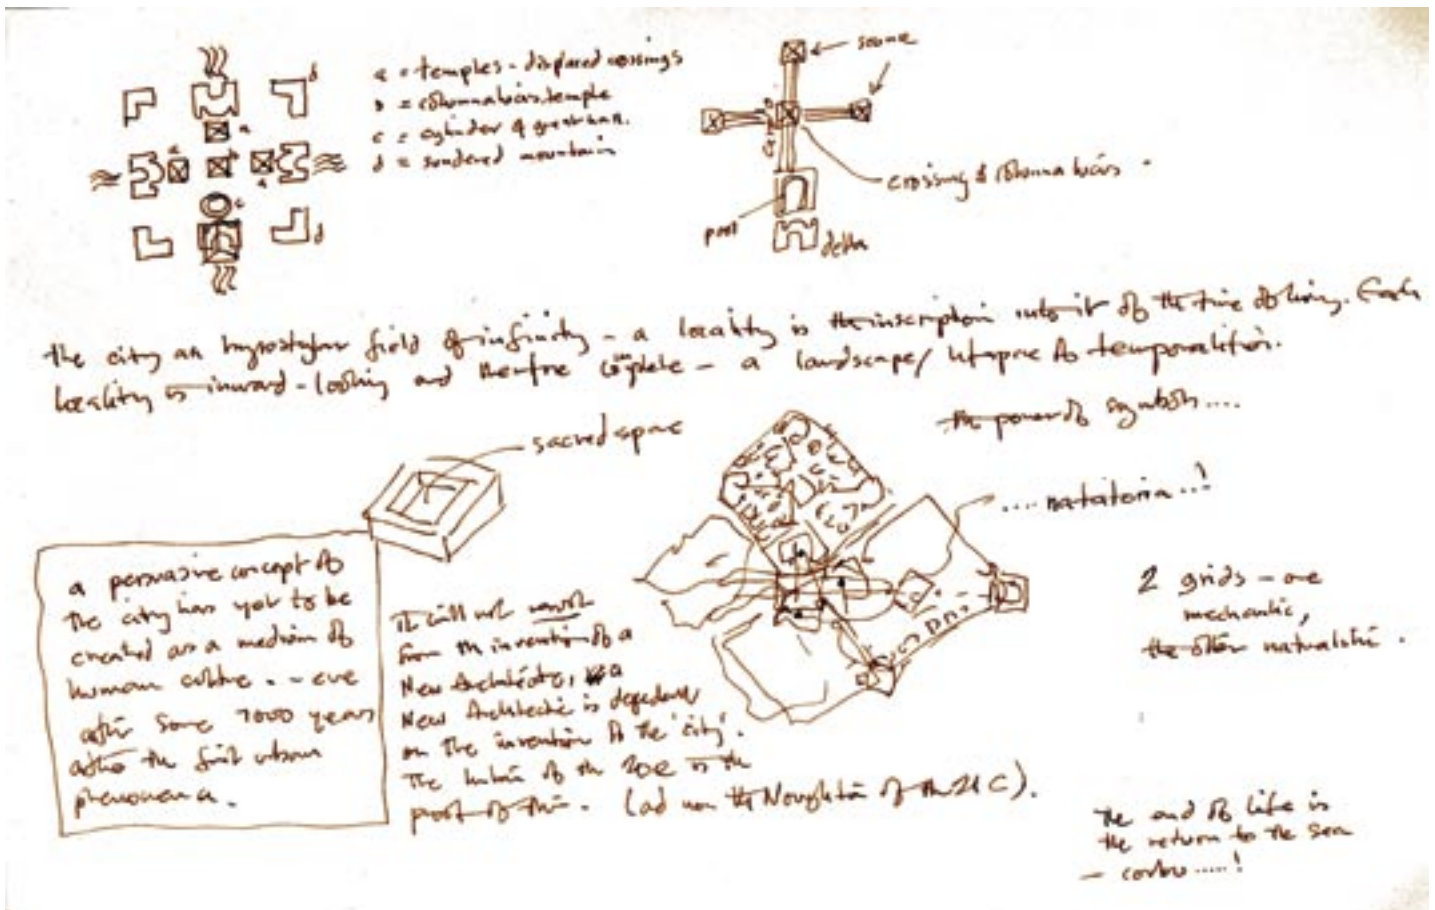 a = temples - displaced crossings
b = columnatrices temple
c = cylinder of
d = sundered mountain
a
a
b
a
c
d
d
source
crossing &
pool
delta
the city as hypostylar field of infinity - a locality is the inscription into it of the time of living. Each
locality is inward-looking and therefore complete - a landscape/ to temporalities.
the power of symbols....
sacred space
.... natatoria ...!
a persuasive concept of
the city has yet to be
created as a medium of
human culture . - even
after some 7000 years
after the first urban
phenomena.
It will not
from the invention of a
New Architecture, a
New Architecture is dependent
on the invention of the 'city'.
The of the 20C is the
proof of this. (ad now the of the 21C).
2 grids - one
mechanic,
the other naturalistic.
the end of life is
the return to the sea
- corbu .....!